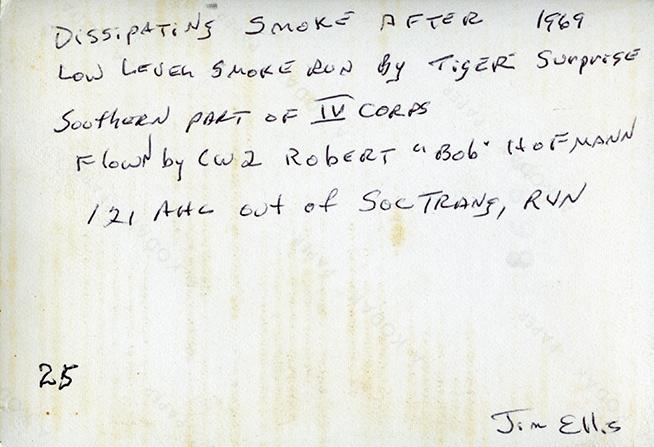 DISSIPATING SMOKE AFTER 1969
LOW LEVEL SMOKE RUN By TIGER Surprise
Southern PART OF IV CORPS
Flown by CW2 ROBERT "Bob" HOFMANN
121 AHC out of SOCTRANg, RVN
25
Jim Ellis